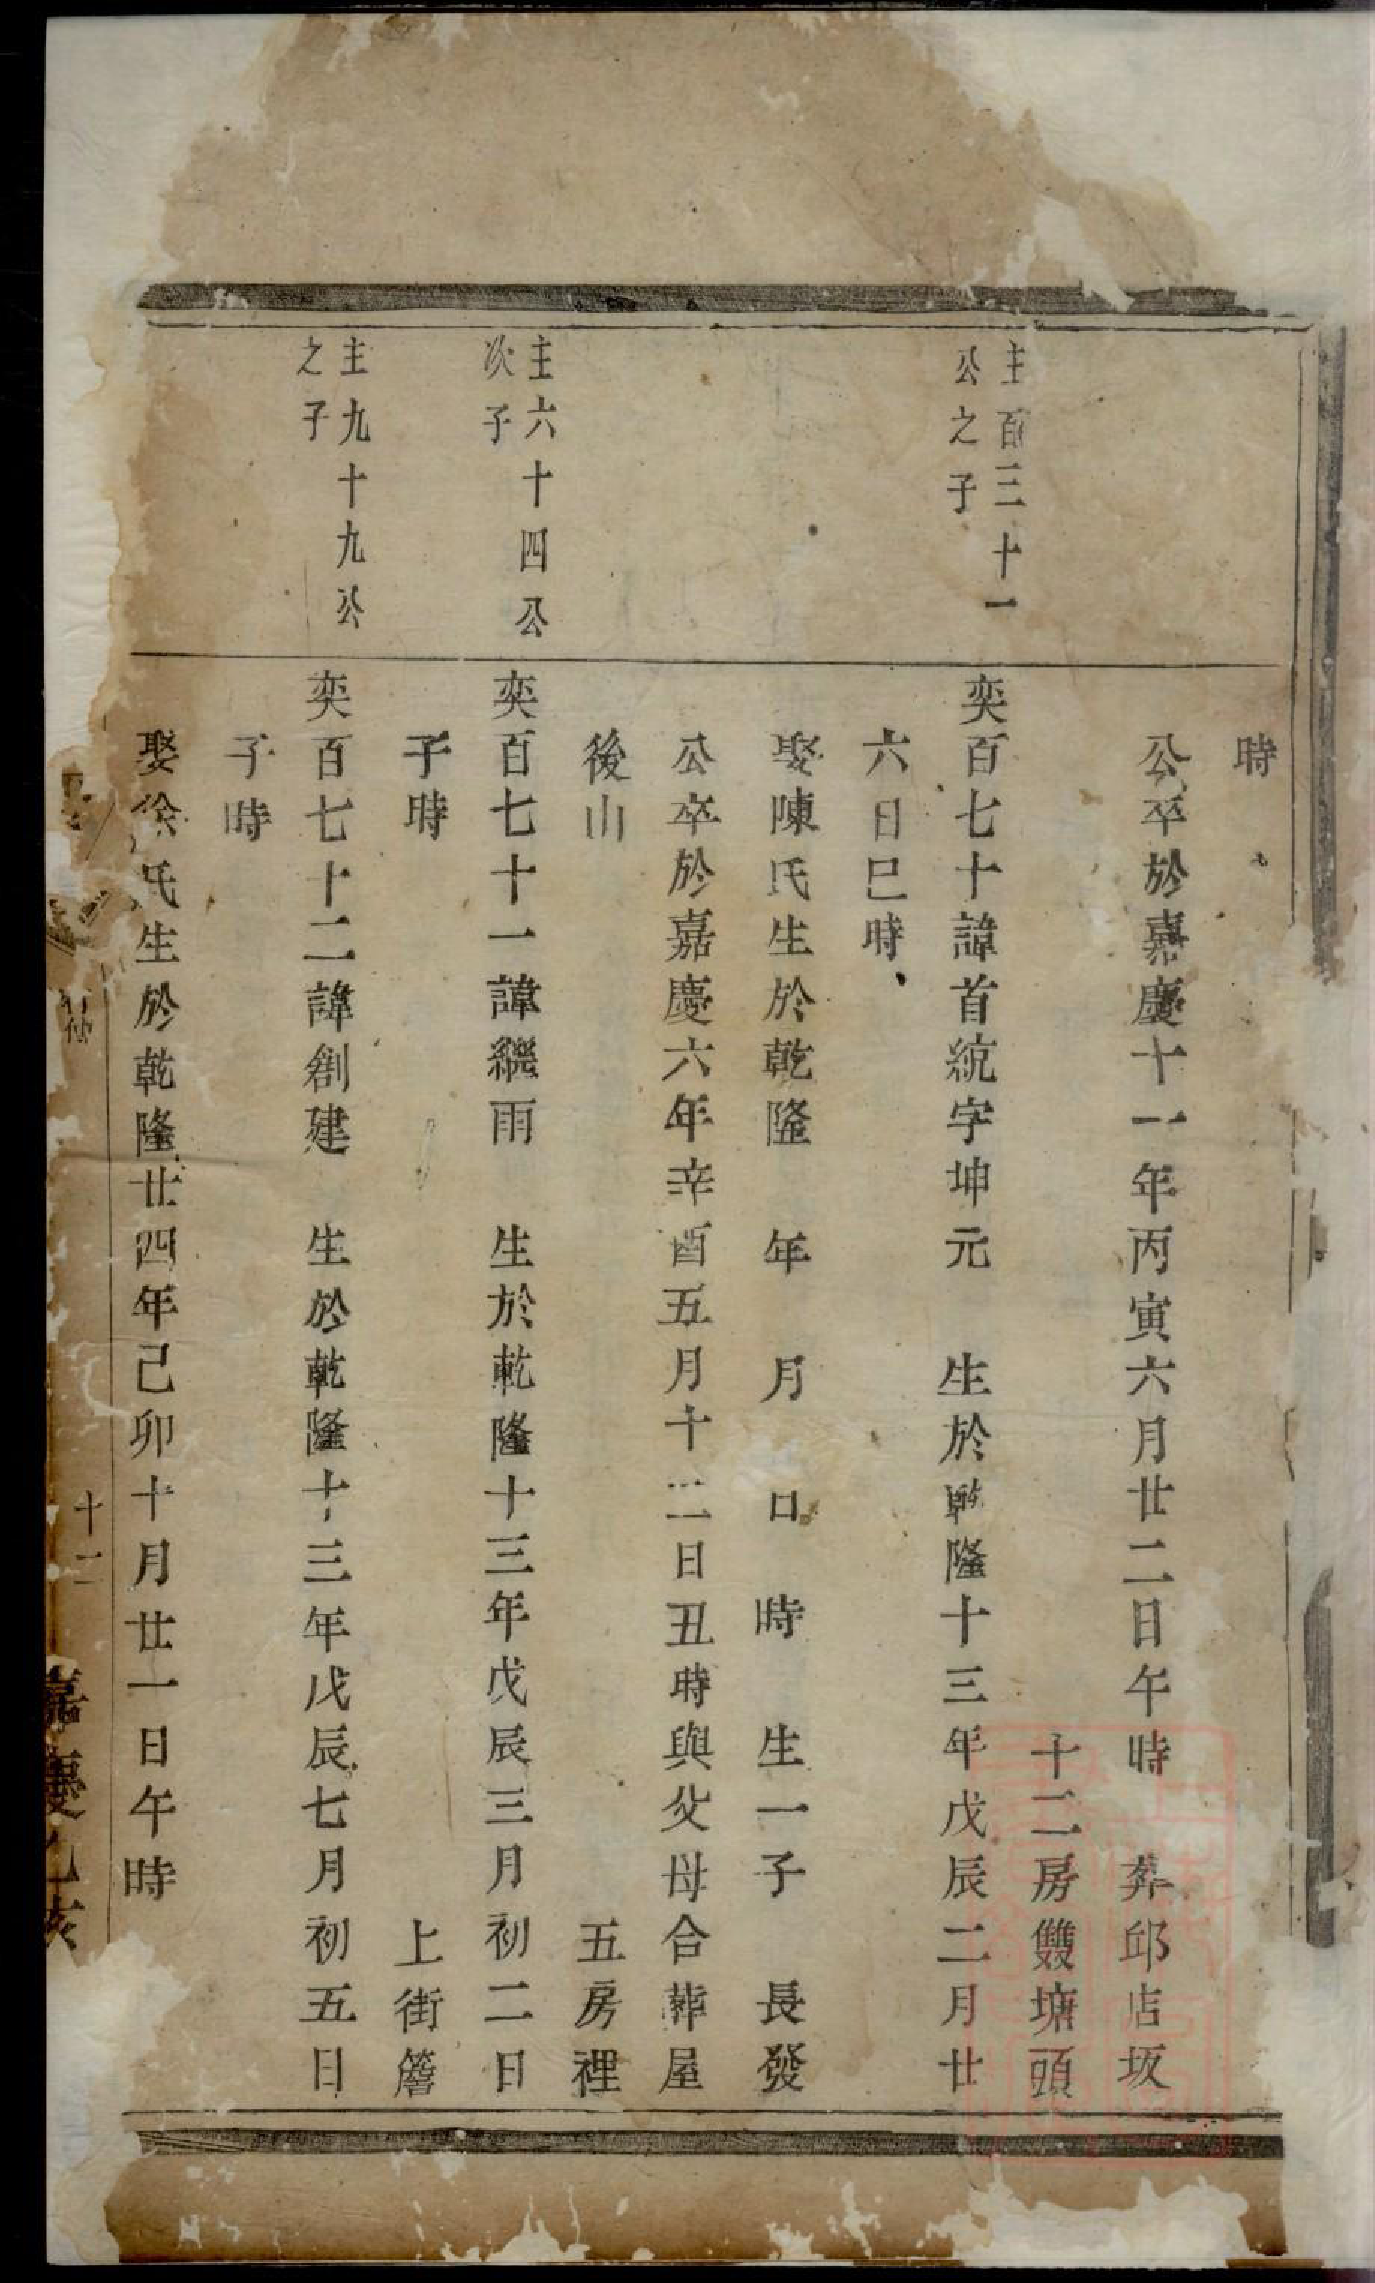 時
公卒於嘉慶十一年丙寅六月廿二日午時　葬邱店坂
十二房雙塘頭
主百三十一
公之子
奕百七十諱首統字坤元　生於乾隆十三年戊辰二月廿
六日巳時
娶陳氏生於乾隆　年　月　日　時　生一子　長發
公卒於嘉慶六年辛酉五月十二日丑時與父母合葬屋
後山　五房裡
主六十四公
次子
奕百七十一諱繼雨　生於乾隆十三年戊辰三月初二日
子時　上街簷
主九十九公
之子
奕百七十二諱創建　生於乾隆十三年戊辰七月初五日
子時
娶徐氏生於乾隆廿四年己卯十月廿一日午時
十二
嘉慶